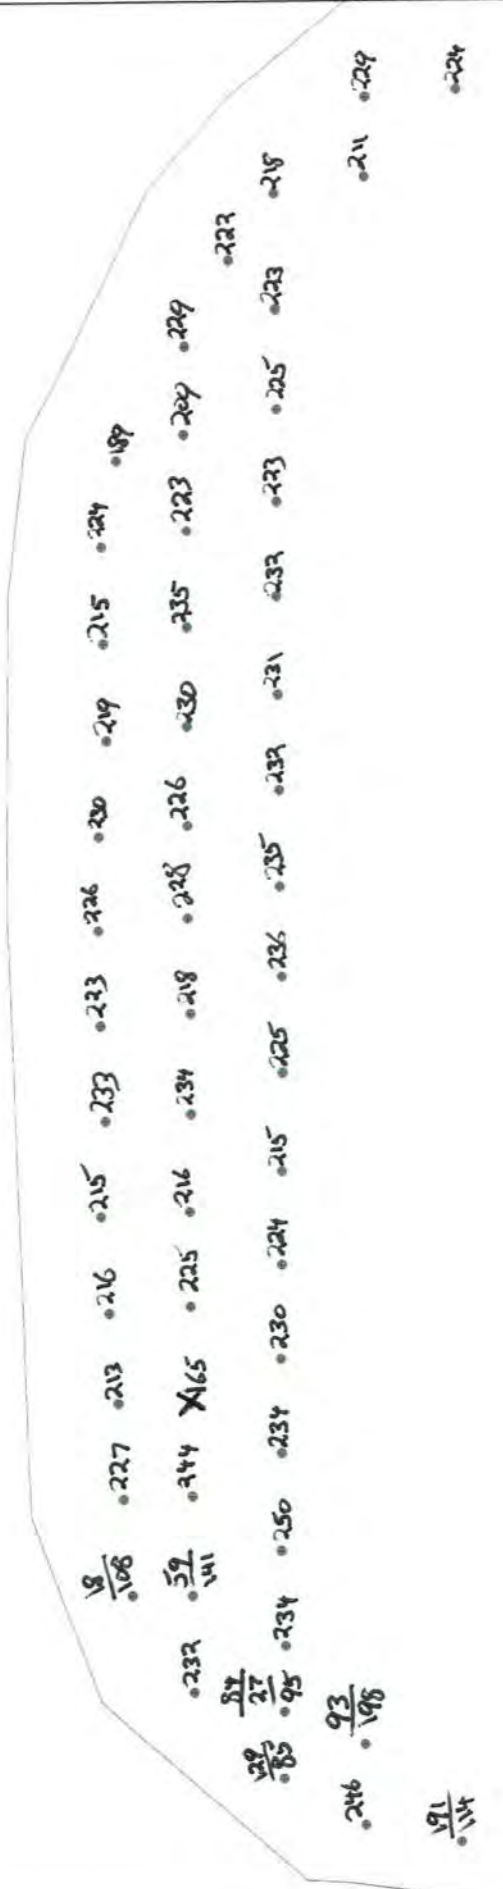 18
108 227 213 216 215 233 223 226 230 219 215 224 189
232 59
141 244 X165 225 216 234 218 228 226 230 235 223 209 229
222
129
85 84
27
95 234 250 234 230 224 215 225 236 235 232 231 232 223 225 223 218
246 93
198 211 229
191
114 224